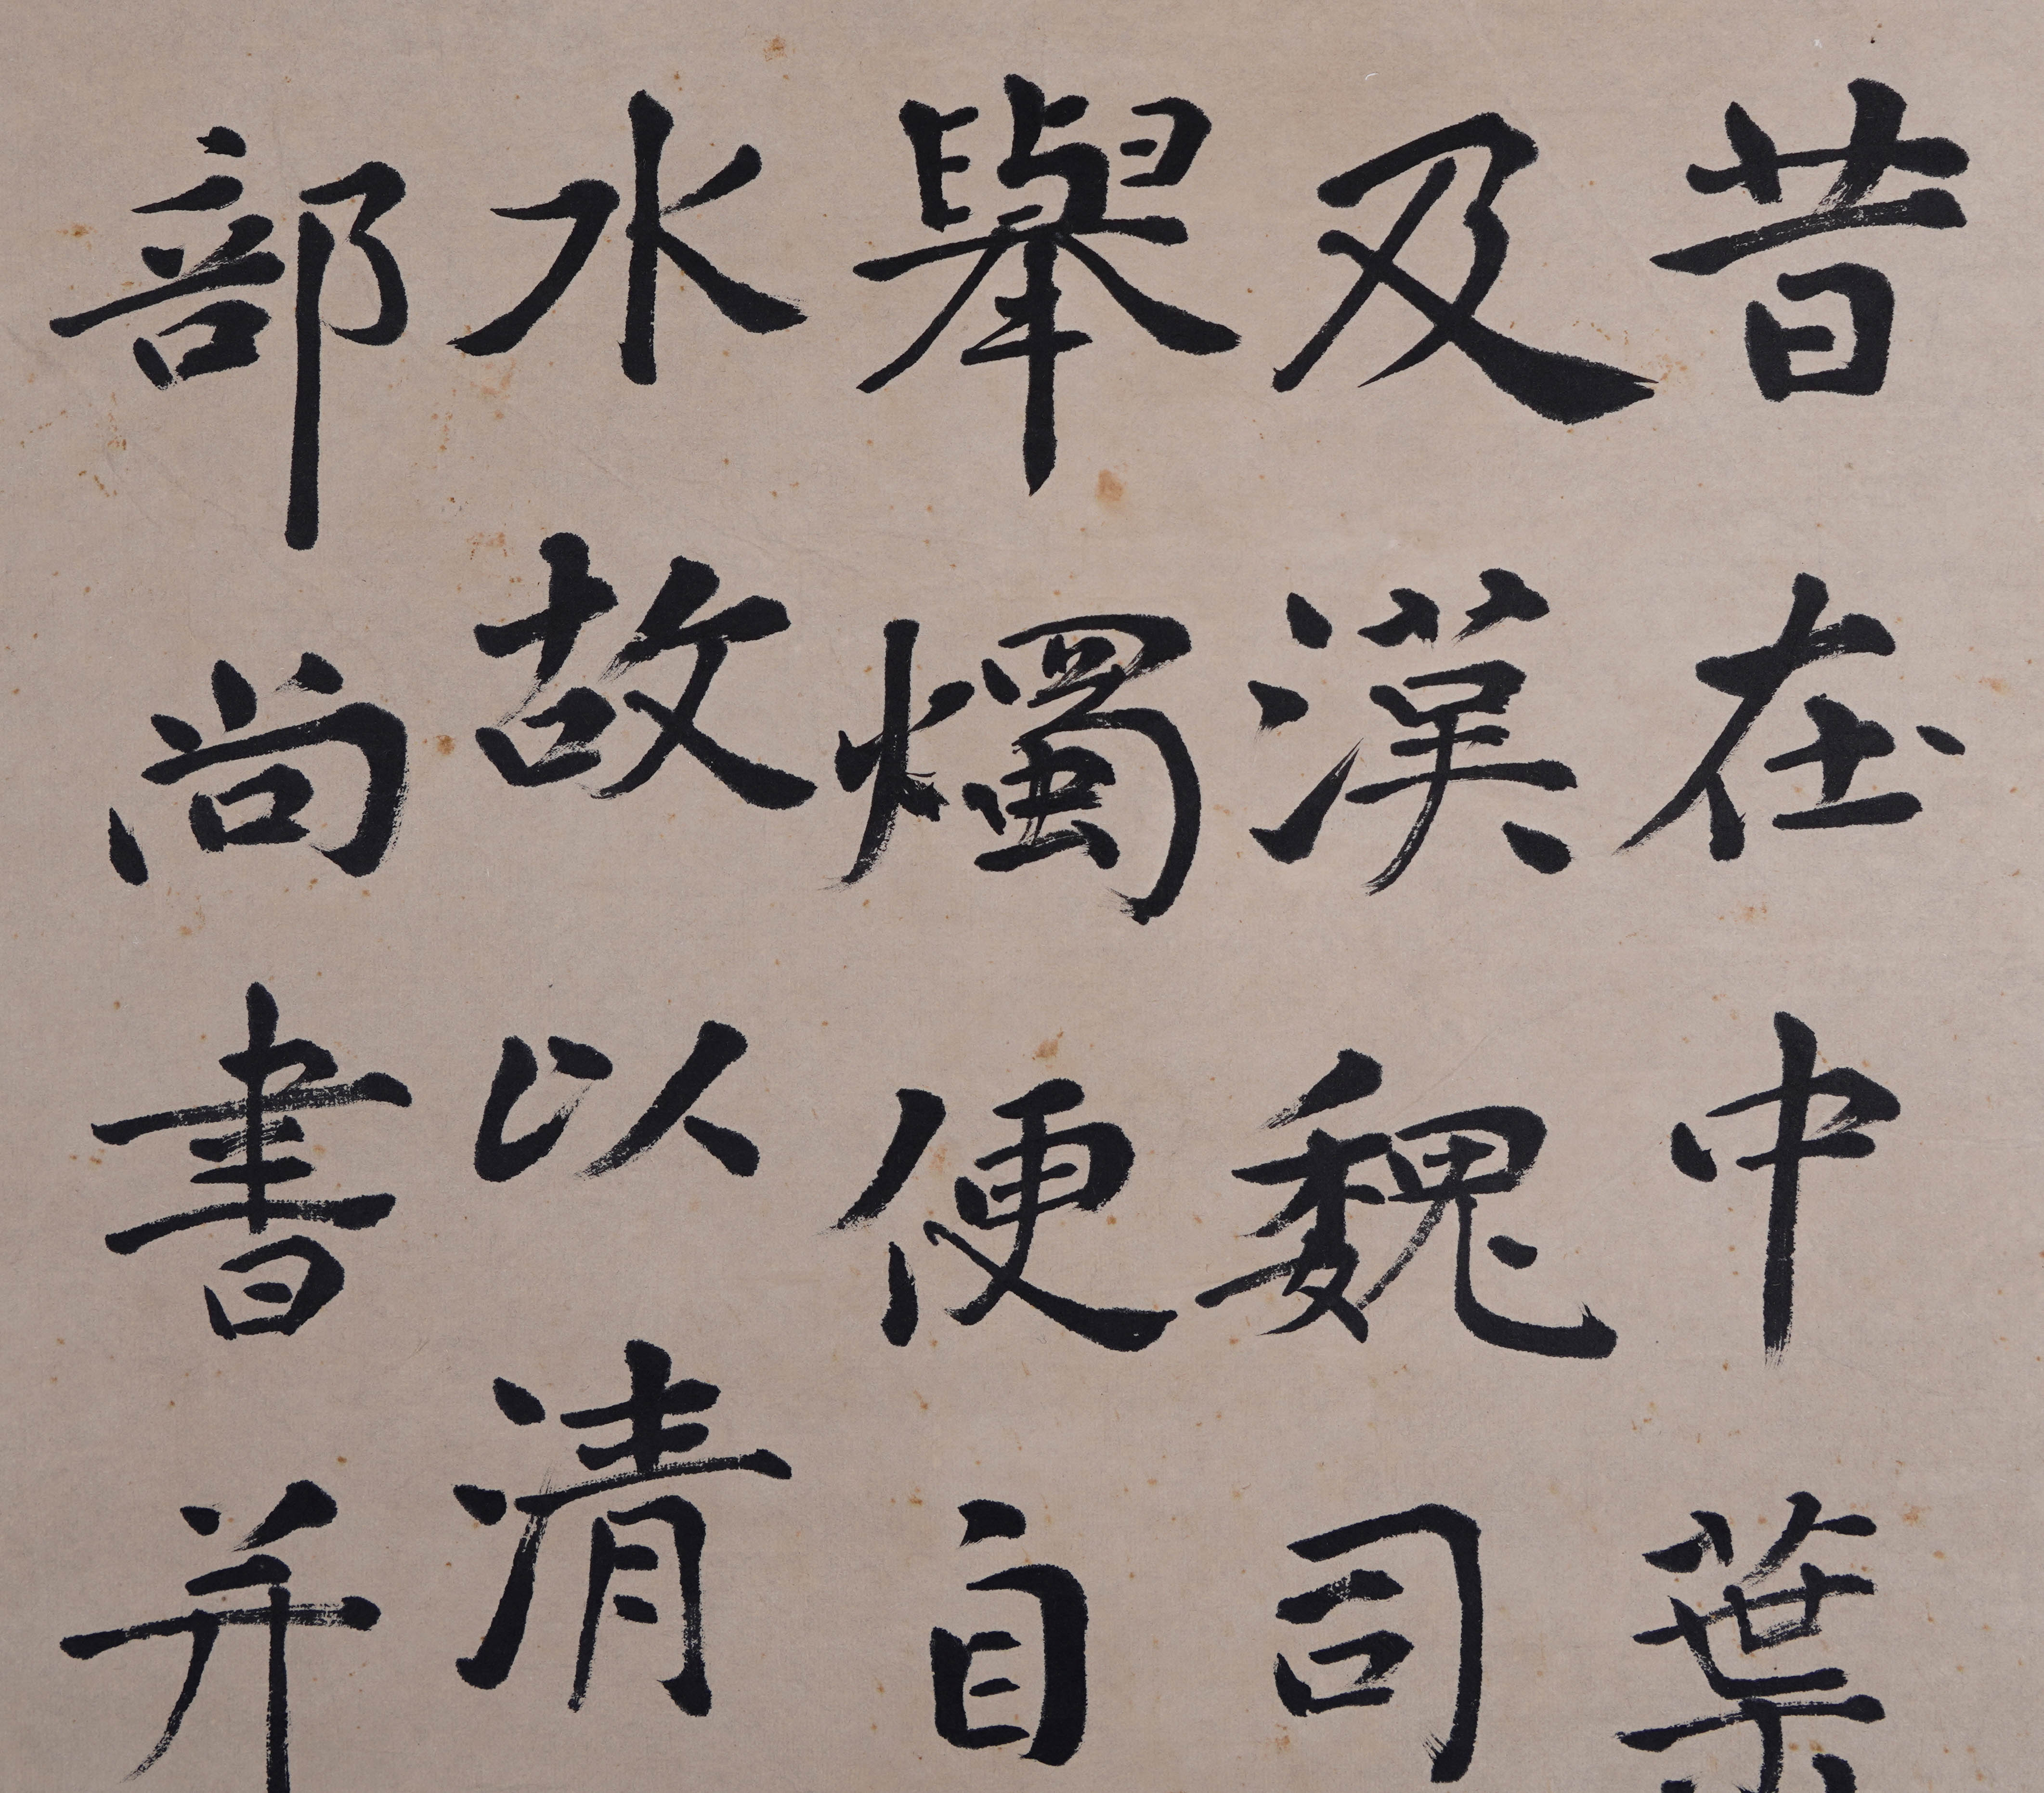 昔在中葉
及漢魏司
舉燭便自
水故以清
部尚書并